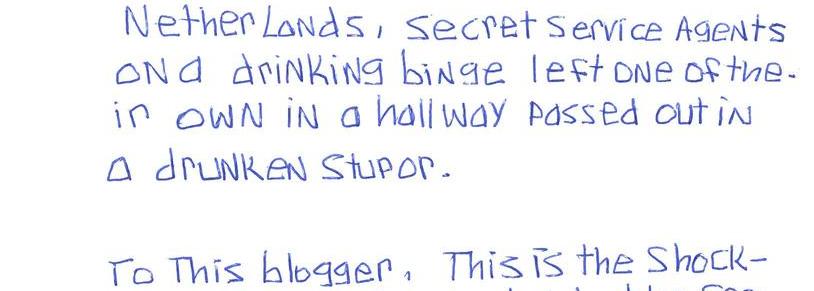 Netherlands, secret service Agents
on a drinking binge left one of the-
ir own in a hallway passed out in
a drunken stupor.
To This blogger, This is the Shock-